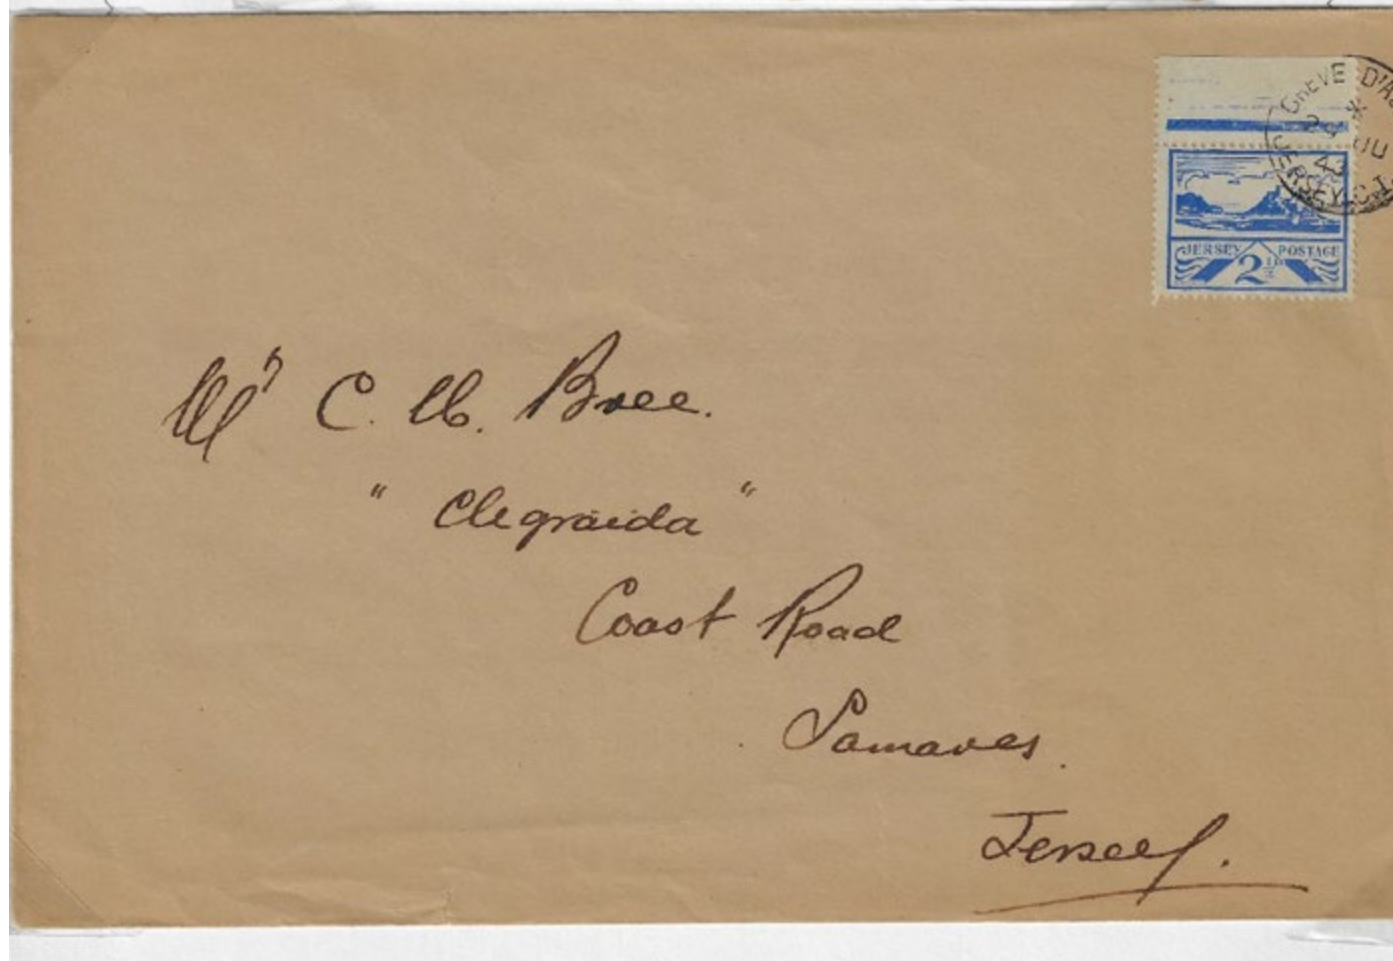 GREVE D'A
29 JU
43
JERSEY C.I.
JERSEY POSTAGE
2½D
Mr C. W. Bree.
"Clegraida"
Coast Road
Samares.
Jersey.